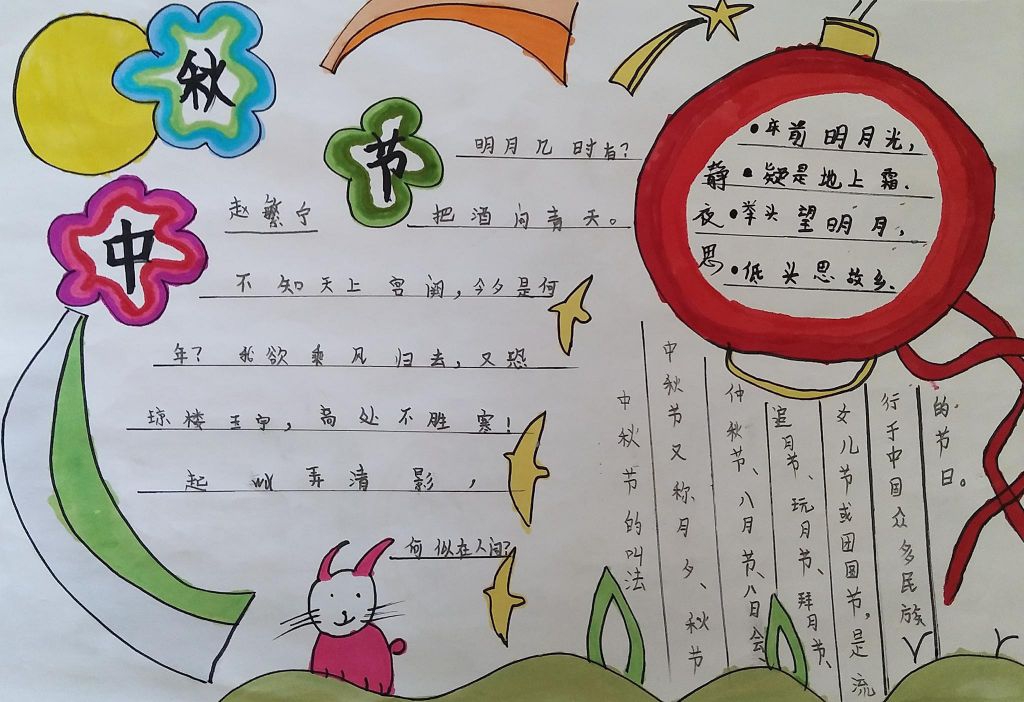 中
秋
节
赵繁宁
明月几时有?
把酒问青天。
不知天上宫阙,今夕是何
年?我欲乘风归去,又恐
琼楼玉宇,高处不胜寒!
起舞弄清影,
何似在人间?
静夜思
•床前明月光,
•疑是地上霜.
•举头望明月,
•低头思故乡.
中秋节的叫法
中秋节又称月夕、秋节
仲秋节、八月节、八日会、
追月节、玩月节、拜月节、
女儿节或团圆节,是流
行于中国众多民族
的节日。